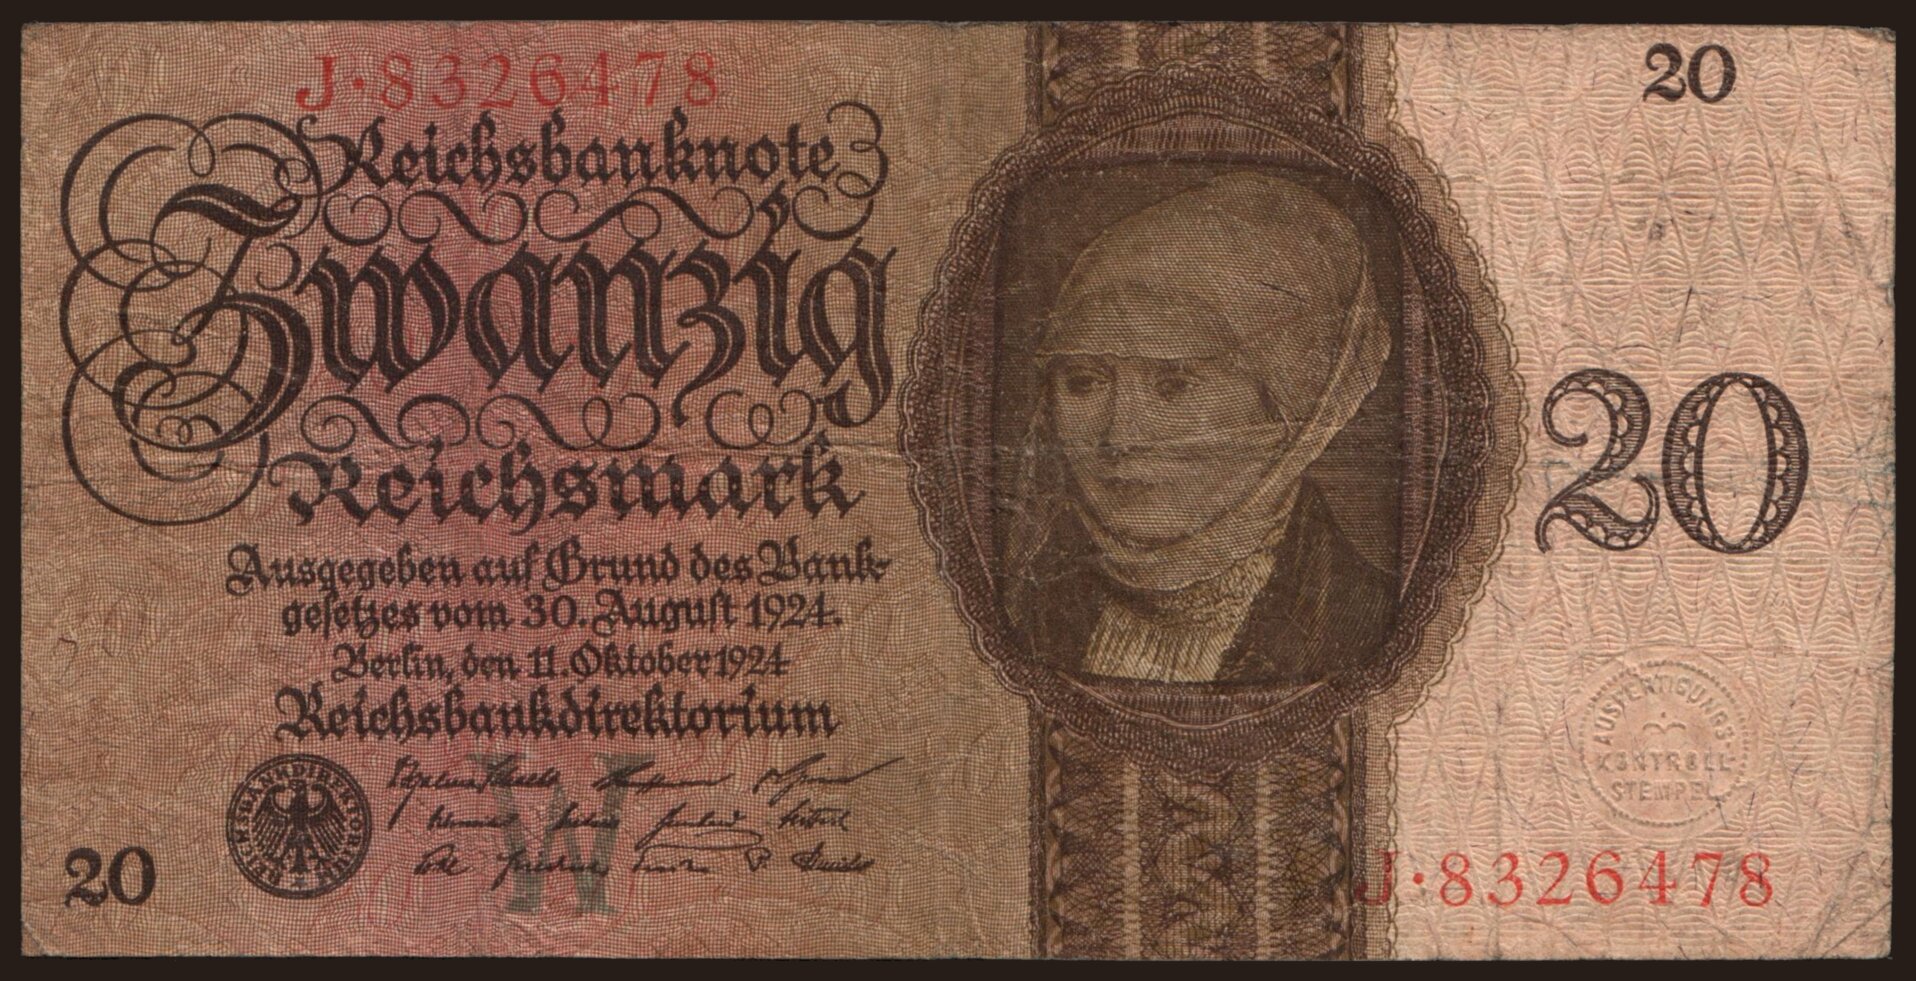 J·8326478
20
Reichsbanknote
Zwanzig
Reichsmark
20
Ausgegeben auf Grund des Bank-
gesetzes vom 30. August 1924.
Berlin, den 11. Oktober 1924
Reichsbankdirektorium
REICHSBANKDIREKTORIUM
W
AUSFERTIGUNGS-
KONTROLL-
STEMPEL
20
J·8326478